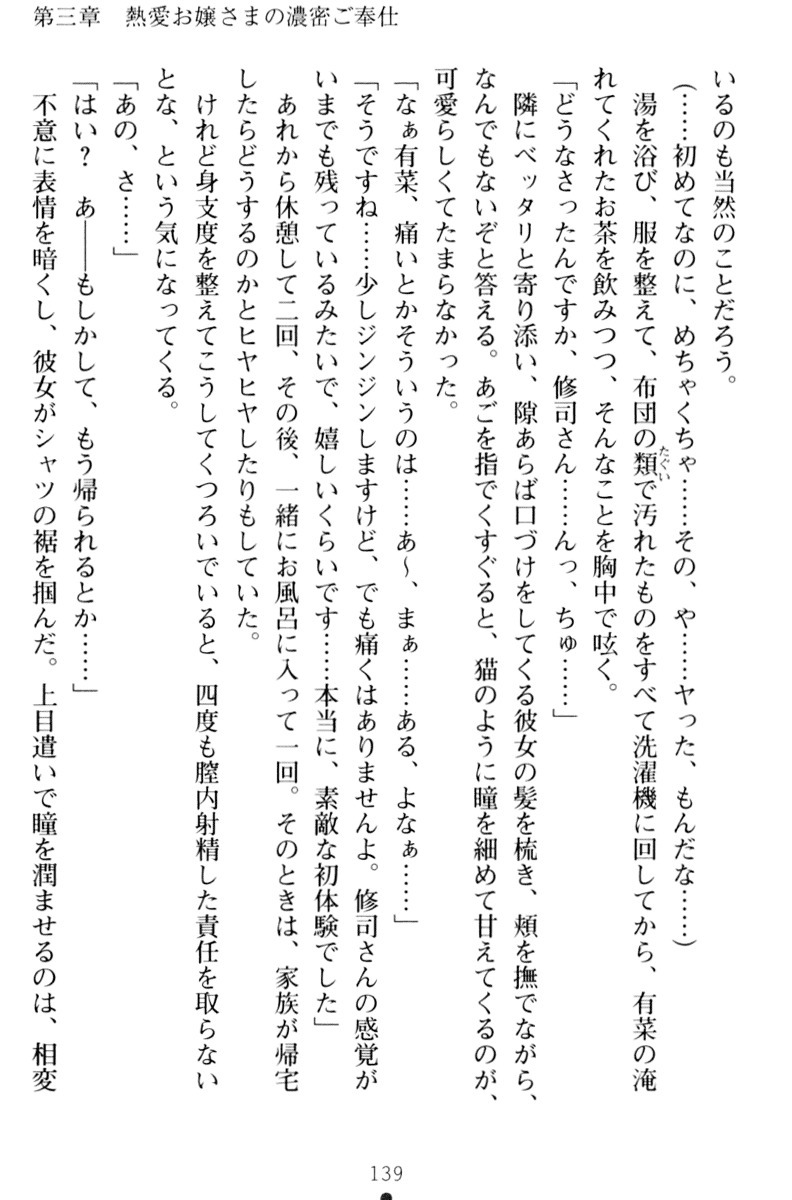 第三章　熱愛お嬢さまの濃密ご奉仕
いるのも当然のことだろう。
（……初めてなのに、めちゃくちゃ……その、や……ヤった、もんだな……）
湯を浴び、服を整えて、布団の類で汚れたものをすべて洗濯機に回してから、有菜の淹
たぐい
れてくれたお茶を飲みつつ、そんなことを胸中で呟く。
「どうなさったんですか、修司さん……んっ、ちゅ……」
隣にベッタリと寄り添い、隙あらば口づけをしてくる彼女の髪を梳き、頬を撫でながら、
なんでもないぞと答える。あごを指でくすぐると、猫のように瞳を細めて甘えてくるのが、
可愛らしくてたまらなかった。
「なぁ有菜、痛いとかそういうのは……あ～、まぁ……ある、よなぁ……」
「そうですね……少しジンジンしますけど、でも痛くはありませんよ。修司さんの感覚が
いまでも残っているみたいで、嬉しいくらいです……本当に、素敵な初体験でした」
あれから休憩して二回、その後、一緒にお風呂に入って一回。そのときは、家族が帰宅
したらどうするのかとヒヤヒヤしたりもしていた。
けれど身支度を整えてこうしてくつろいでいると、四度も膣内射精した責任を取らない
とな、という気になってくる。
「あの、さ……」
「はい？　あ――もしかして、もう帰られるとか……」
不意に表情を暗くし、彼女がシャツの裾を掴んだ。上目遣いで瞳を潤ませるのは、相変
139